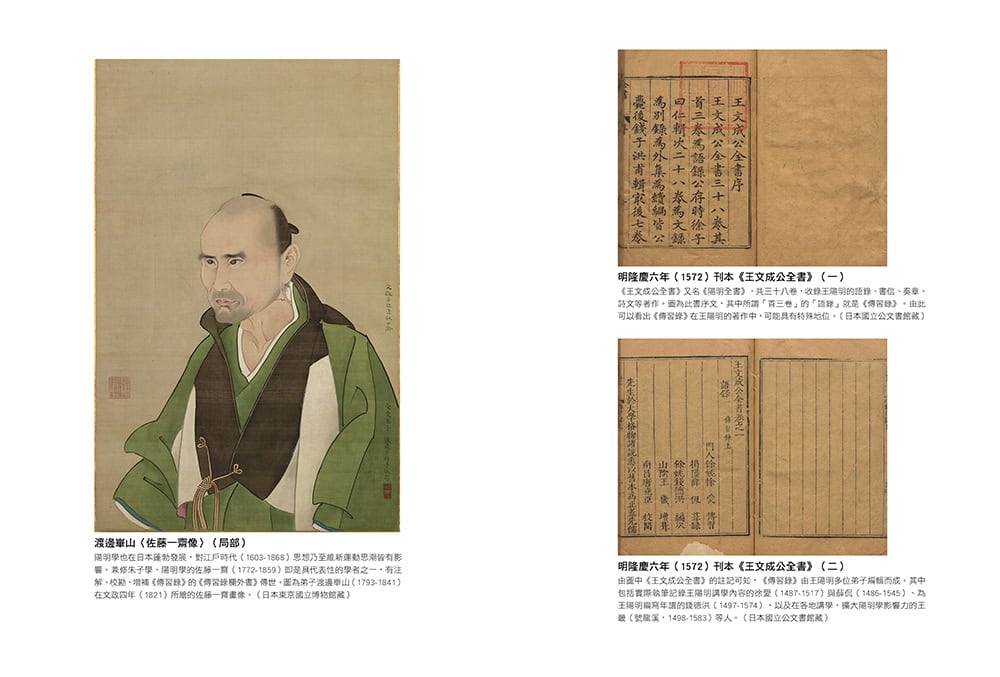 渡邊崋山〈佐藤一齋像〉(局部)
陽明學也在日本蓬勃發展,對江戶時代(1603-1868)思想乃至維新運動思潮皆有影
響。兼修朱子學、陽明學的佐藤一齋(1772-1859)即是具代表性的學者之一,有注
解、校勘、增補《傳習錄》的《傳習錄欄外書》傳世。圖為弟子渡邊崋山(1793-1841)
在文政四年(1821)所繪的佐藤一齋畫像。(日本東京國立博物館藏)
王文成公全書序
王文成公全書三十八卷其
首三卷為語錄公存時徐子
曰仁輯次二十八卷為文錄
為別錄為外集為續編皆公
薨後錢子洪甫輯最後七卷
明隆慶六年(1572)刊本《王文成公全書》(一)
《王文成公全書》又名《陽明全書》,共三十八卷,收錄王陽明的語錄、書信、奏章、
詩文等著作。圖為此書序文,其中所謂「首三卷」的「語錄」就是《傳習錄》。由此
可以看出《傳習錄》在王陽明的著作中,可能具有特殊地位。(日本國立公文書館藏)
王文成公全書卷之一
語錄 傳習錄上
門人餘姚徐愛傳習
揭陽薛侃葺錄
餘姚錢德洪編次
山陰王畿增葺
南昌唐堯臣校閱
先生於大學格物諸說悉以舊本為正蓋先儒
明隆慶六年(1572)刊本《王文成公全書》(二)
由圖中《王文成公全書》的註記可知,《傳習錄》由王陽明多位弟子編輯而成。其中
包括實際執筆記錄王陽明講學內容的徐愛(1487-1517)與薛侃(1486-1545),為
王陽明編寫年譜的錢德洪(1497-1574),以及在各地講學,擴大陽明學影響力的王
畿(號龍溪,1498-1583)等人。(日本國立公文書館藏)